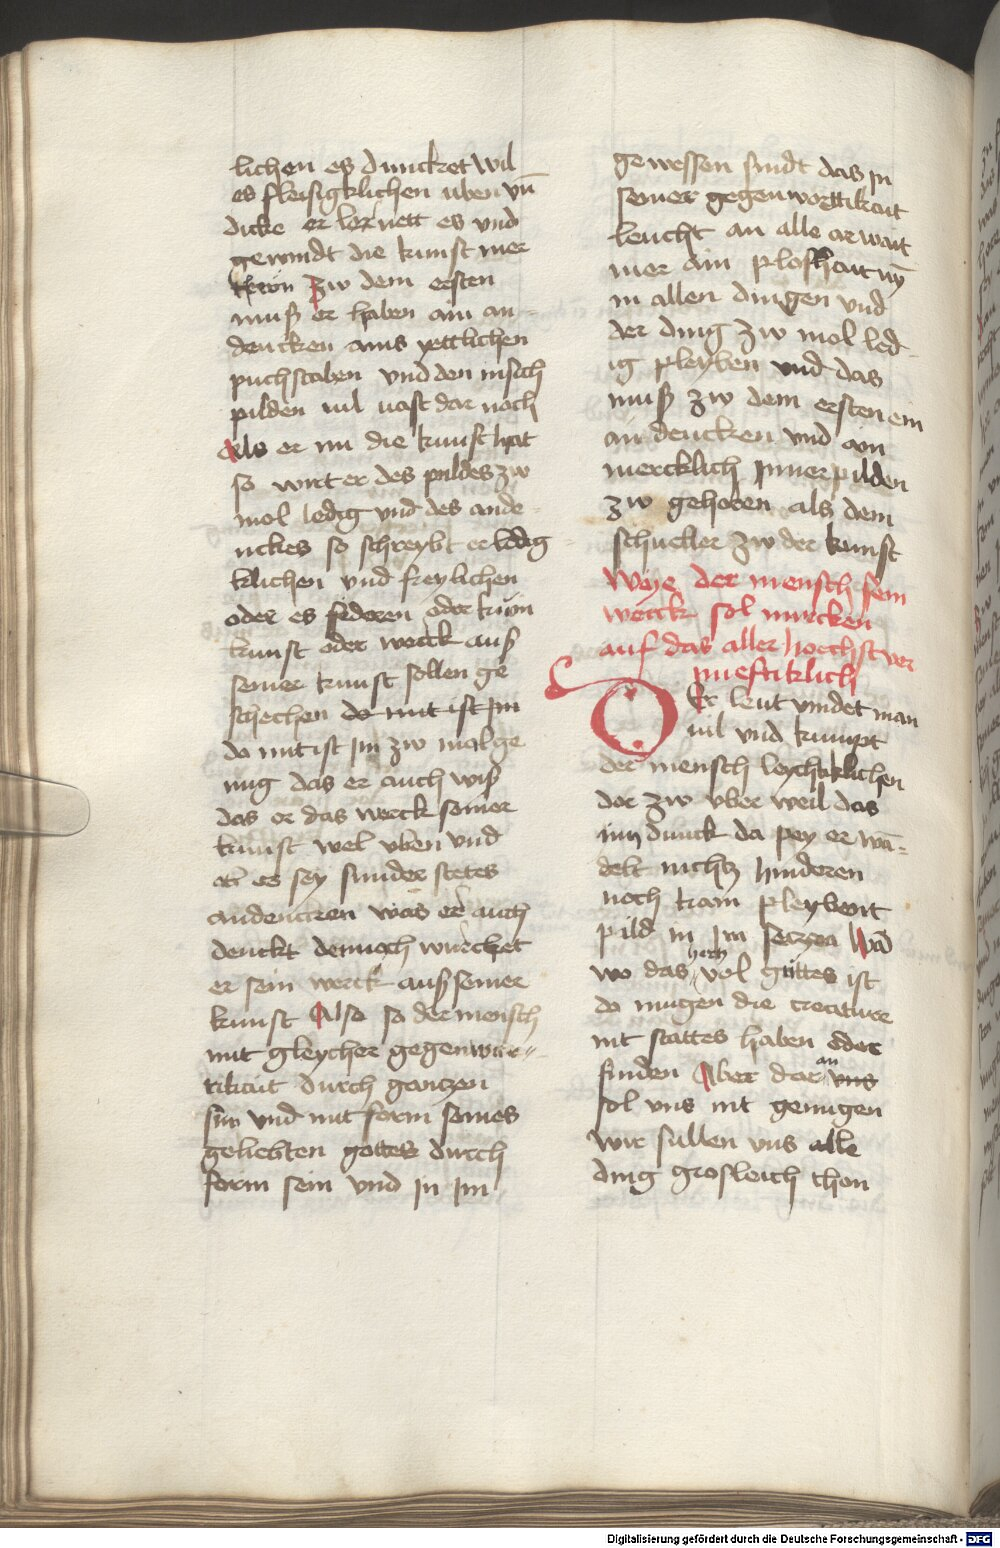 lichen es dunncket wil
es fleisigklichen uben vn̄
dicke er lernett es und
gewindt die kunst wer
zw dem ersten
muß er haben ain an-
dencken ains yettlichen
puchstaben vnd den in sich
pilden vil vast dar noch
Als er nu die kunst hat
so wirt er des pildes zw
mol ledig vnd des ande-
nckes so schreybt er ledig
klichen vnd freylichen
oder es sideren oder kain
kunst oder werck auß
seiner kunst sollen ge
schechen do mit ist Im
do mit ist Im zw mal ge
nug das er auch wiß
das er das werck seiner
kunst wel vben vnd
es sey sunder stetes
andencken was er auch
denckt dennoch wurcket
er sein werck auß seiner
kunst Also so der mensch
mit gleycher gegenwur-
tikait durch gantzen
sin vnd mit form seines
geliebten gottes durch
form sein vnd in Im
gewessen sindt das in
seiner gegenworttikait
leucht an alle arwait
mer ain plosshait
in allen dingen vnd
der ding zw mol led-
ig pleyben vnd das
muß zw dem ersten ein
an dencken vnd ain
mercklich Inner pilden
zw gehoren als dem
schueller zw der kunst
Weye der mensch sein
werck sol wurcken
auf das aller hoechst ver
nueftiklich
Der leut vindet man
vil vnd kumpt
der mensch leychtiklichen
dor zw vber weil das
inn dunck da pey er wā-
delt nichtz hinderen
noch kain pleybent
pild in Im setzen Wā
wo das hercz vol gottes ist
do mugen die creature
nit stattes haben oder
finden Aber dar an vns
sol vns nit genugen
wir sullen vns alle
ding grosleich thon
Digitalisierung gefördert durch die Deutsche Forschungsgemeinschaft - DFG